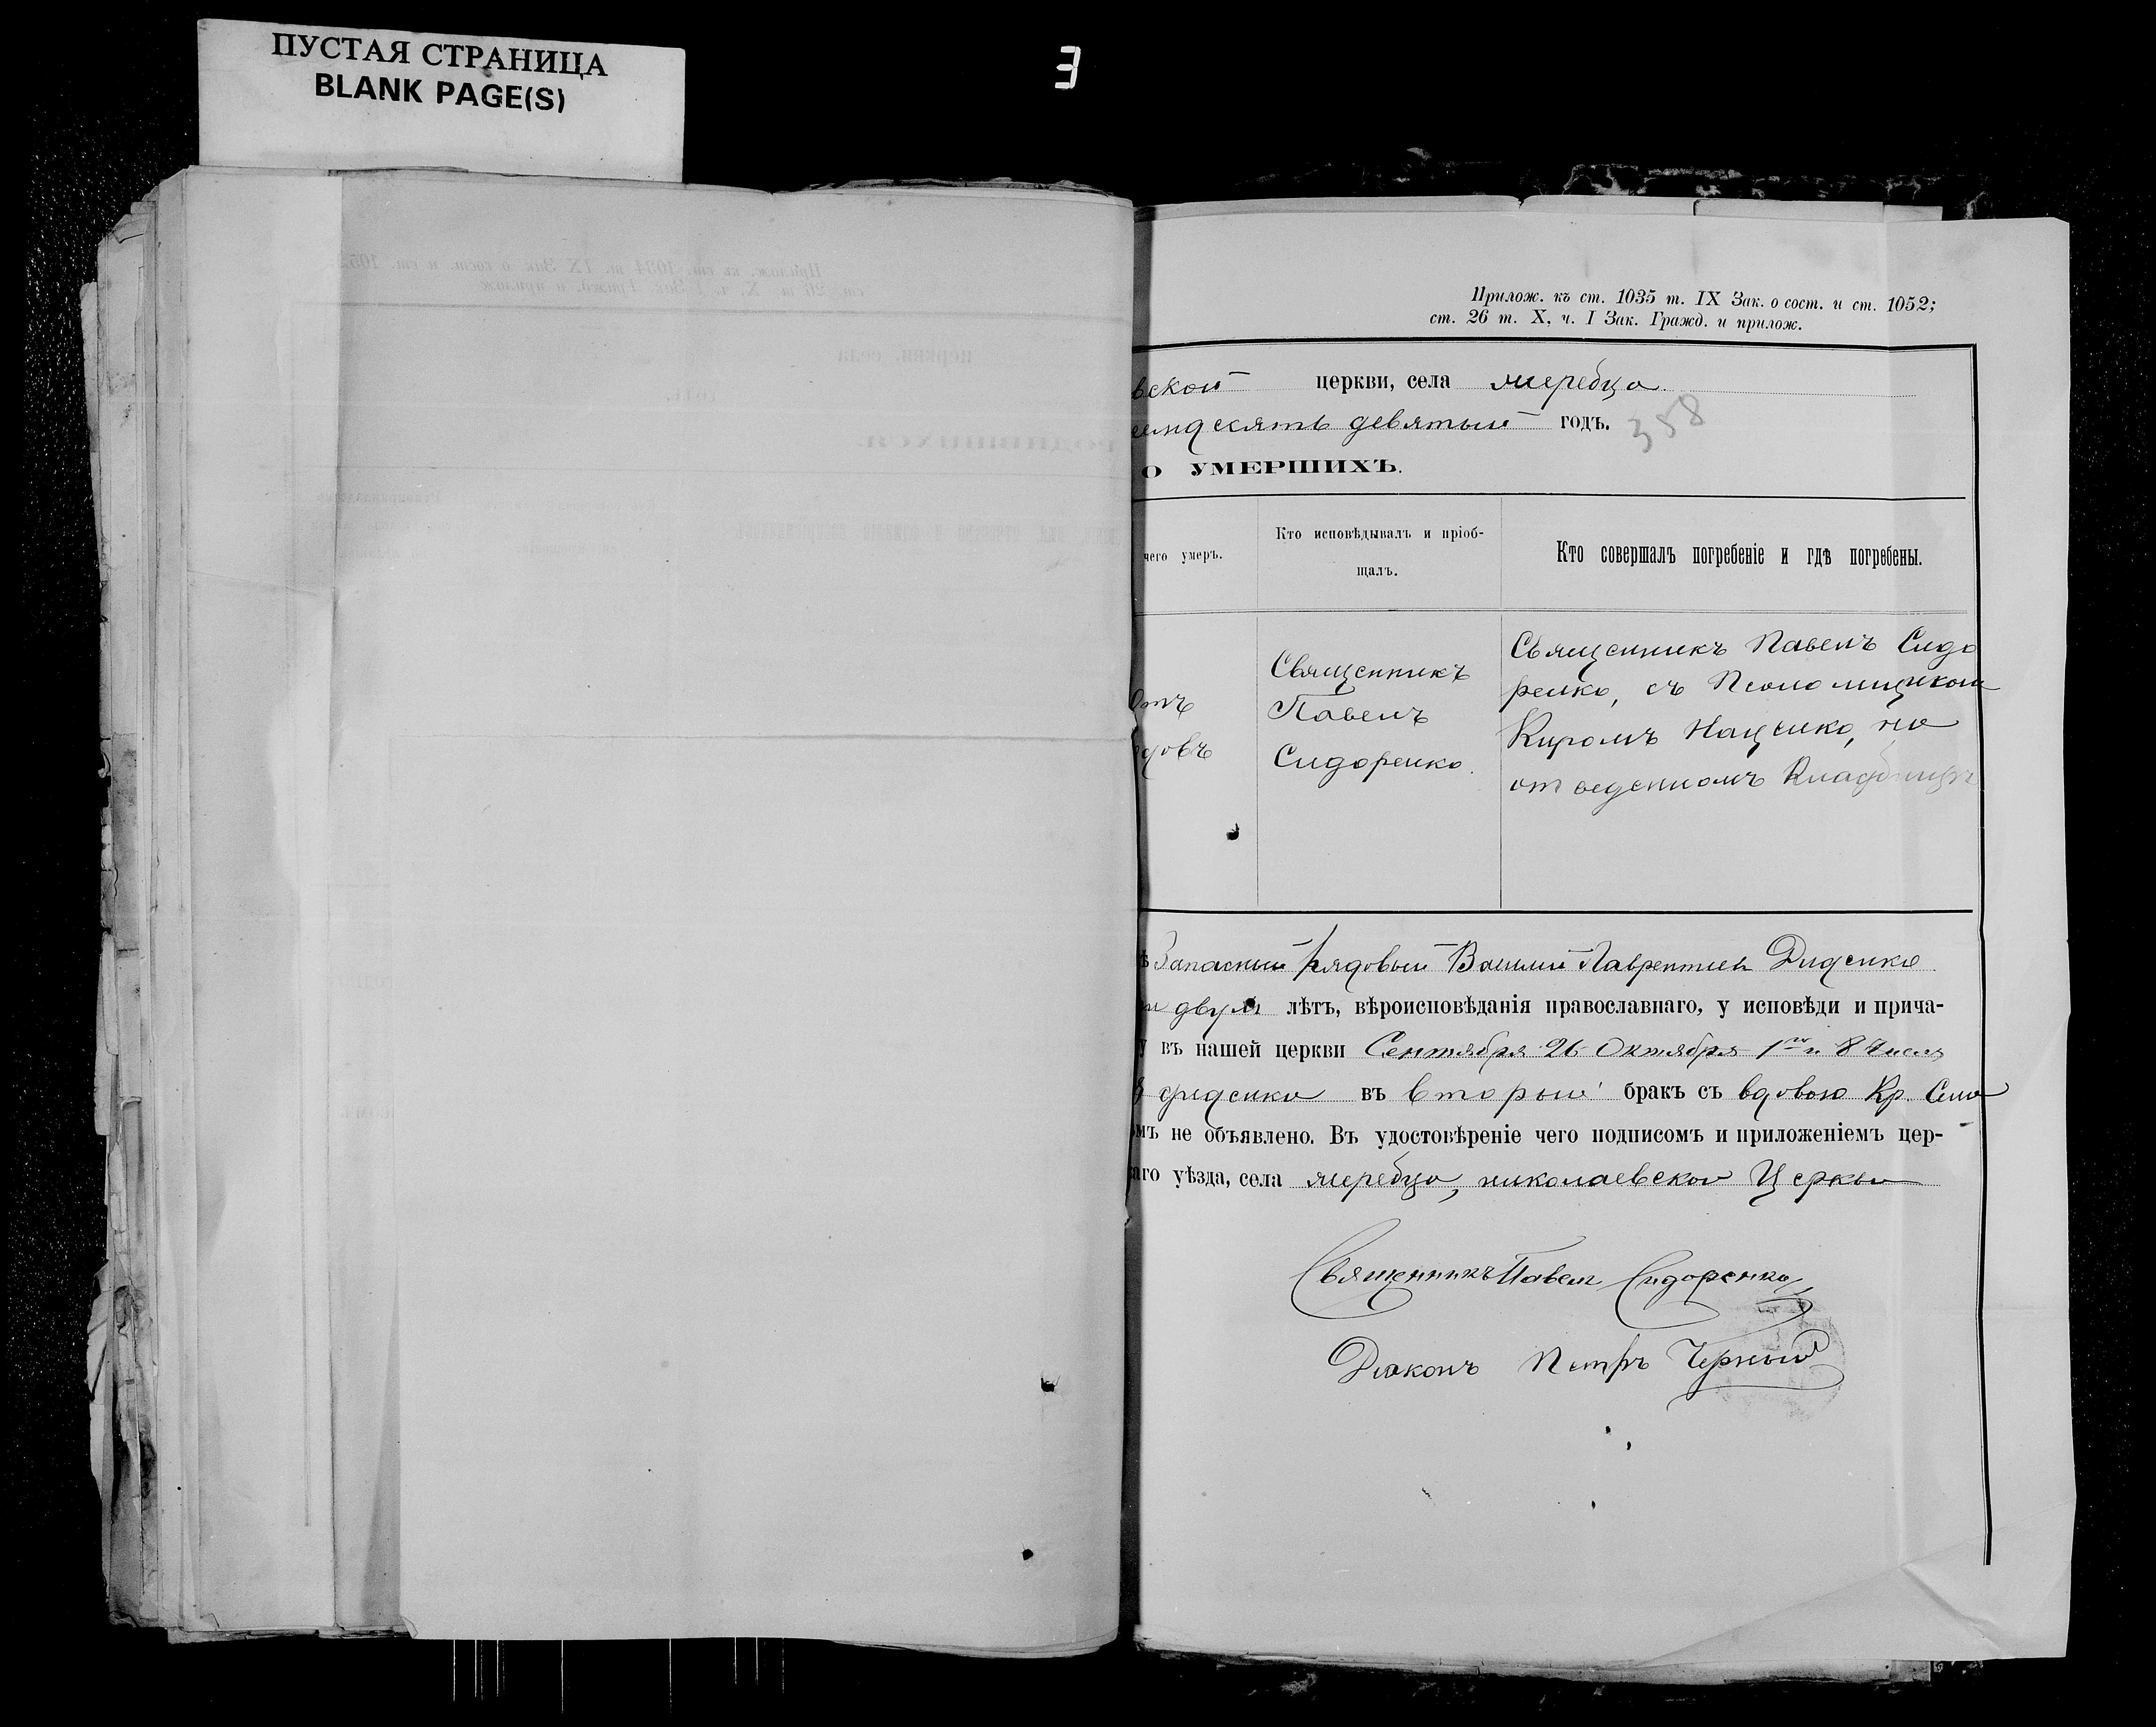 ПУСТАЯ СТРАНИЦА
BLANK PAGE(S)
Прилож. къ ст. 1035 т. IX Зак. о сост. и ст. 1052;
ст. 26 т. X, ч. I Зак. Гражд. и прилож.
вской церкви, села Жеребца
семдесятъ девятый годъ.
358
О УМЕРШИХЪ.
чего умеръ.
Кто исповѣдывалъ и пріоб-
щалъ.
Кто совершалъ погребеніе и гдѣ погребены.
Отъ
Священникъ
Павелъ
Сидоренко.
Священникъ Павелъ Сидо
ренко, съ Псаломщикомъ
Киромъ Наценко, на
отведенномъ Кладбищѣ
Запасный рядовый Василий Лаврентиев Диденко
двухъ лѣтъ, вѣроисповѣданія православнаго, у исповѣди и прича-
въ нашей церкви Сентября 26 Октября 1го и 8 Числъ
Диденко въ вторый бракъ съ вдовою Кр.
не объявлено. Въ удостовѣреніе чего подписомъ и приложеніемъ цер-
аго уѣзда, села Жеребца, николаевской Церкви
Священникъ Павелъ Сидоренко
Диаконъ Петръ Черный